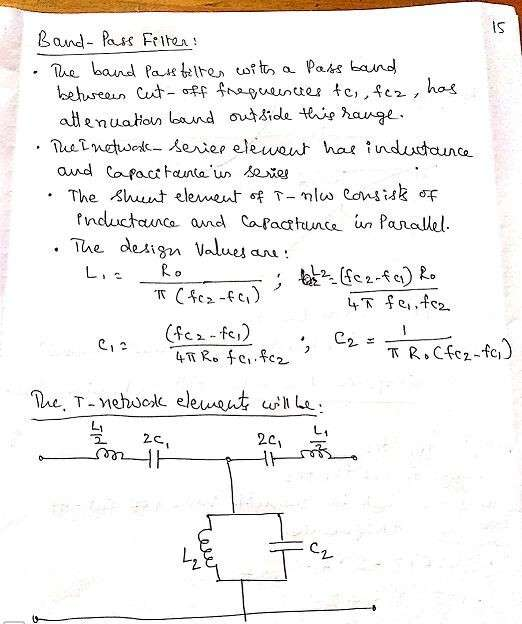 15
Band-Pass Filter:
• The band Pass filter with a Pass band
between Cut-off frequencies fc1, fc2, has
attenuation band outside this range.
• The T network- Series element has inductance
and capacitance in series
• The Shunt element of T-n/w Consists of
Inductance and Capacitance in Parallel.
• The design Values are:
L1 = R0 / π (fc2-fc1) ; L2 = (fc2-fc1) R0 / 4π fc1.fc2
C1 = (fc2-fc1) / 4π R0 fc1.fc2 ; C2 = 1 / π R0 (fc2-fc1)
The T-network elements will be:
L1/2 2C1 2C1 L1/2
L2 C2